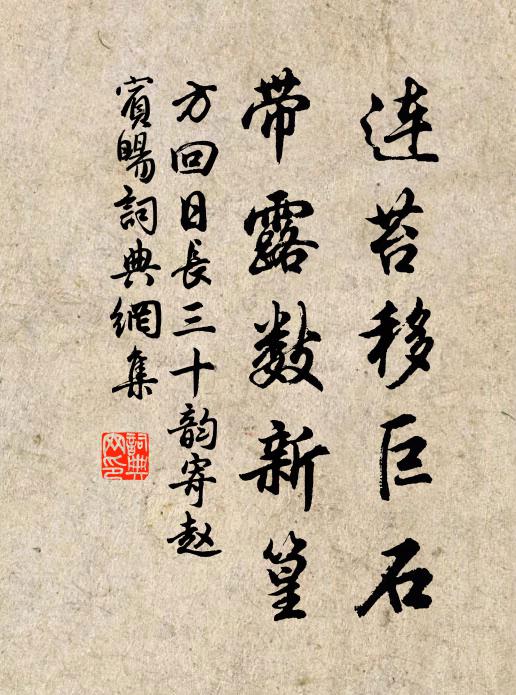 连苔移巨石
带露数新篁
方回日长三十韵寄赵
宾旸词典網集
詞典網印